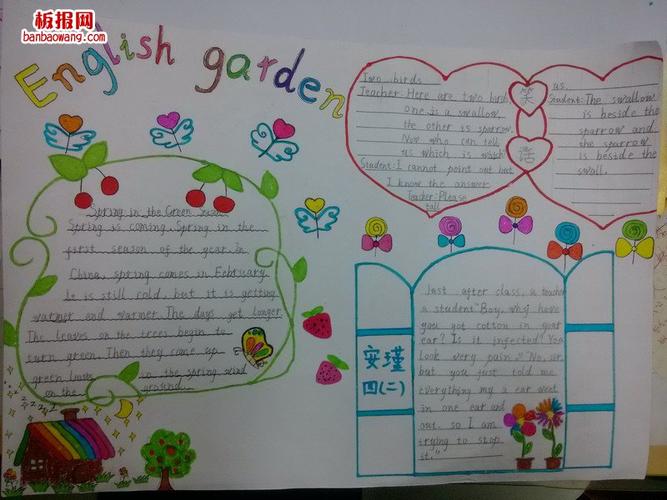 板报网
banbaowang.com
English garden
Spring in the Green Season
Spring is coming. Spring in the
first season of the year. In
China, spring comes in February.
It is still cold, but it is getting
warmer and warmer. The days get longer.
The leaves on the trees begin to
turn green. Then they come up
green leaves in the spring wind
on the ground.
Two birds
Teacher: Here are two birds,
one is a swallow,
the other is sparrow.
Now who can tell
us which is which
Student: I cannot point out but
I know the answer
Teacher: Please
tall
笑
话
us.
Student: The swallow
is beside the
sparrow and
the sparrow
is beside the
swall.
安瑾
四(二)
Last after class, a teacher
a student "Boy, why have
you got cotton in your
ear? Is it infected? You
look very pain." "No, sir,
but you just told me
everything my a ear went
in one ear and
out, so I am
trying to stop
it."